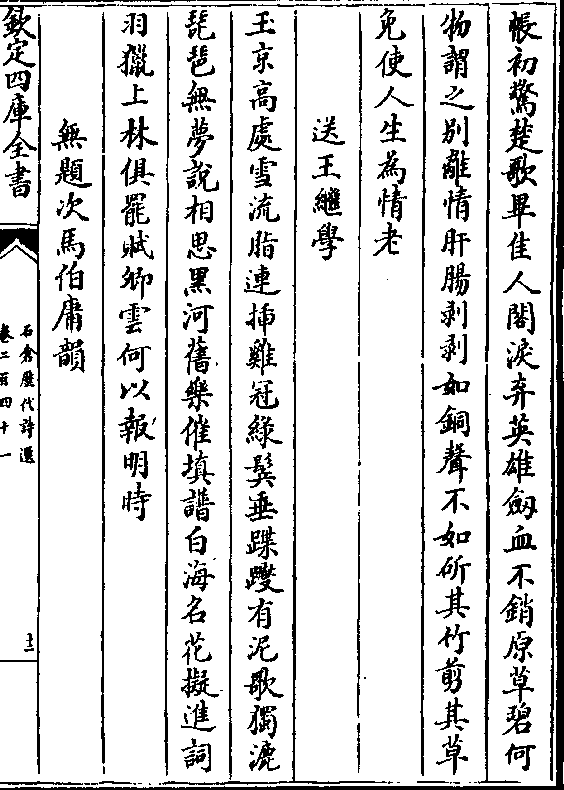 帳初驚楚歌畢佳人閣淚弃英雄劔血不銷原草碧何
物謂之别離情肝腸剥剥如銅聲不如斫其竹剪其草
免使人生為情老
送王繼學
玉京高處雪流脂連插雞冠綠鬓垂蹀躞有泥歌獨漉
琵琶無夢說相思黒河舊樂催填譜白海名花擬進詞
羽獵上林俱罷賦卿雲何以報明時
無題次馬伯庸韻
欽定四庫全書
石倉歴代詩選
卷二百四十一
十二